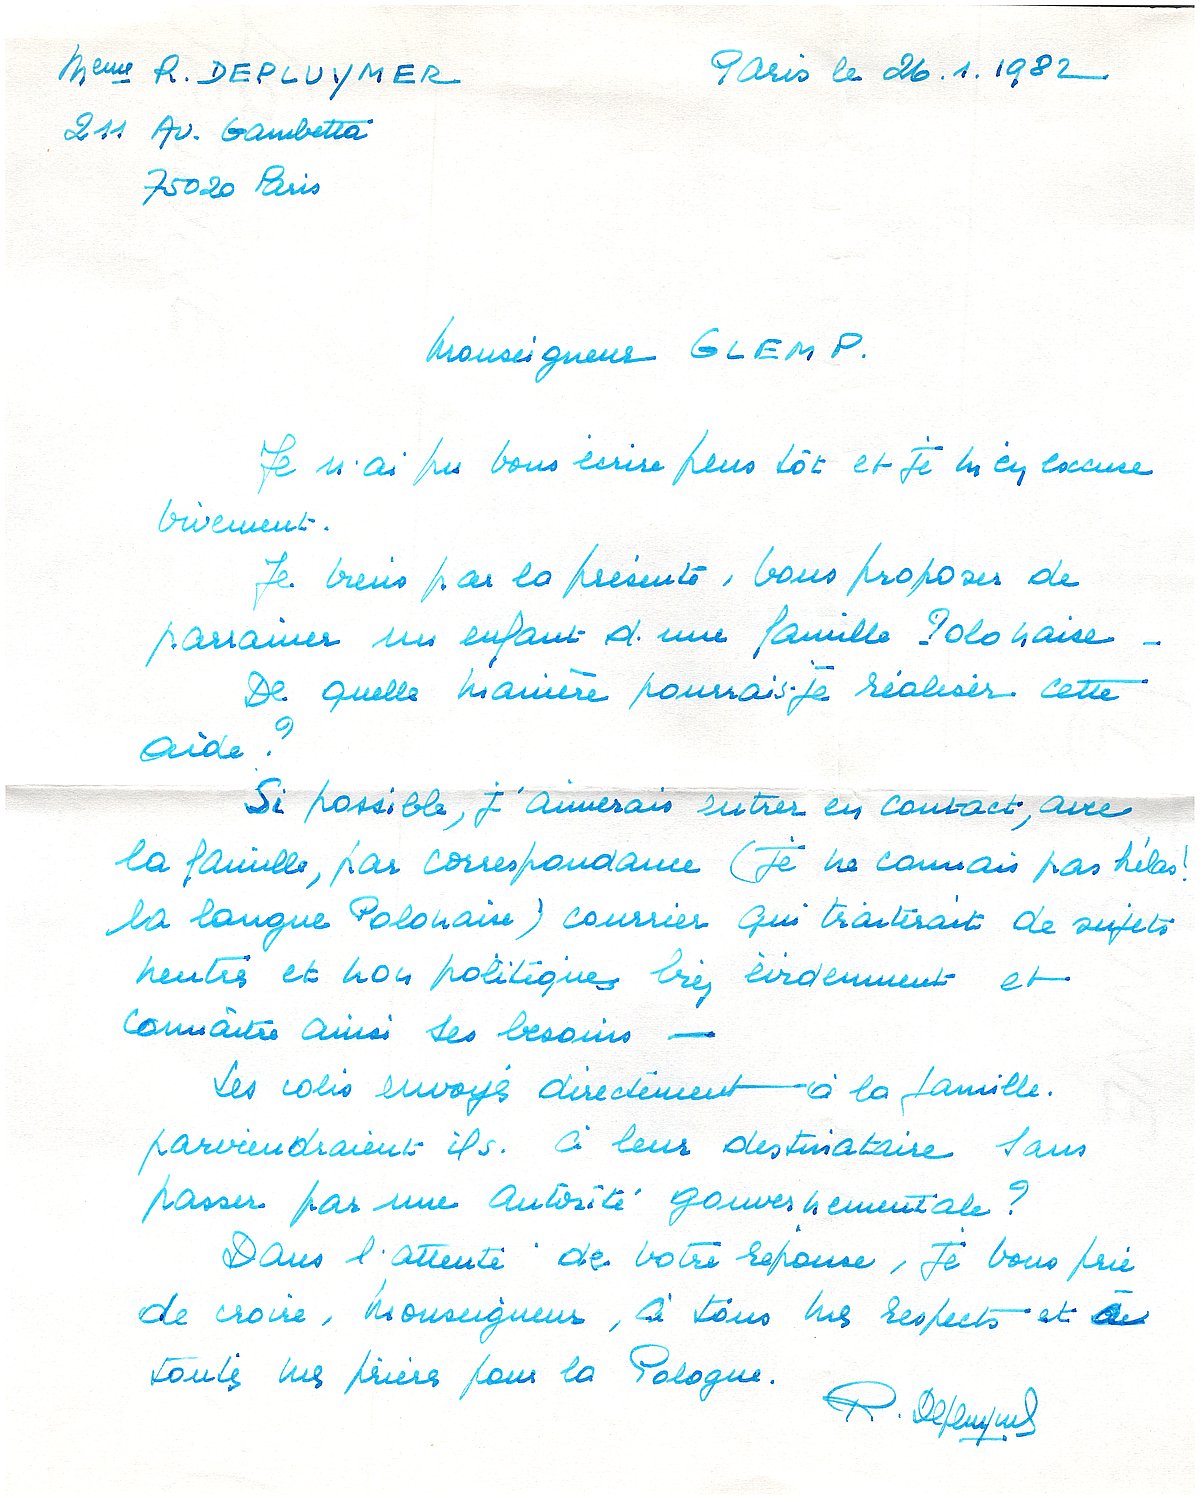 Meme R. DEPLUYMER
Paris le 26.1.1982
211 Av. Gambetta
75020 Paris
Monseigneur GLEMP.
Je n'ai pu vous écrire plus tôt et je m'en excuse
vivement.
Je viens par la présente, vous proposer de
parrainer un enfant d'une famille Polonaise -
De quelle manière pourrais-je réaliser cette
aide ?
Si possible, j'aimerais entrer en contact, avec
la famille, par correspondance (je ne connais pas hélas!
la langue Polonaise) courrier qui traiterait de sujets
neutres et non politiques bien évidemment et
connaître ainsi ses besoins —
Les colis envoyés directement — à la famille.
parviendraient ils. à leur destinataire sans
passer par une autorité gouvernementale ?
Dans l'attente de votre réponse, je vous prie
de croire, Monseigneur, à tous mes respects et à
toutes mes prières pour la Pologne.
R. Depluymer